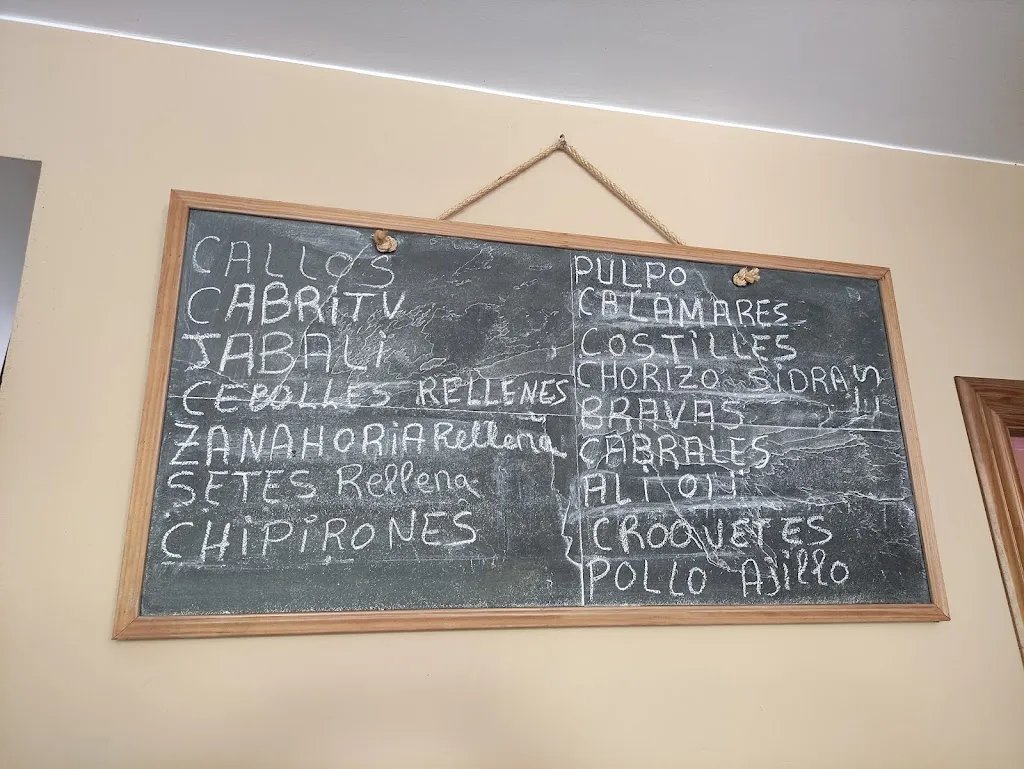 CALLOS
CABRiTV
JABALi
CEBOLLES RELLENES
ZANAHORiA Rellena
SETES Rellena
CHIPiRONES
PULPO
CALAMARES
COSTILLES
CHORIZO SiDRA
BRAVAS
CABRALES
ALi Oli
CROQUETES
POLLO AJillo